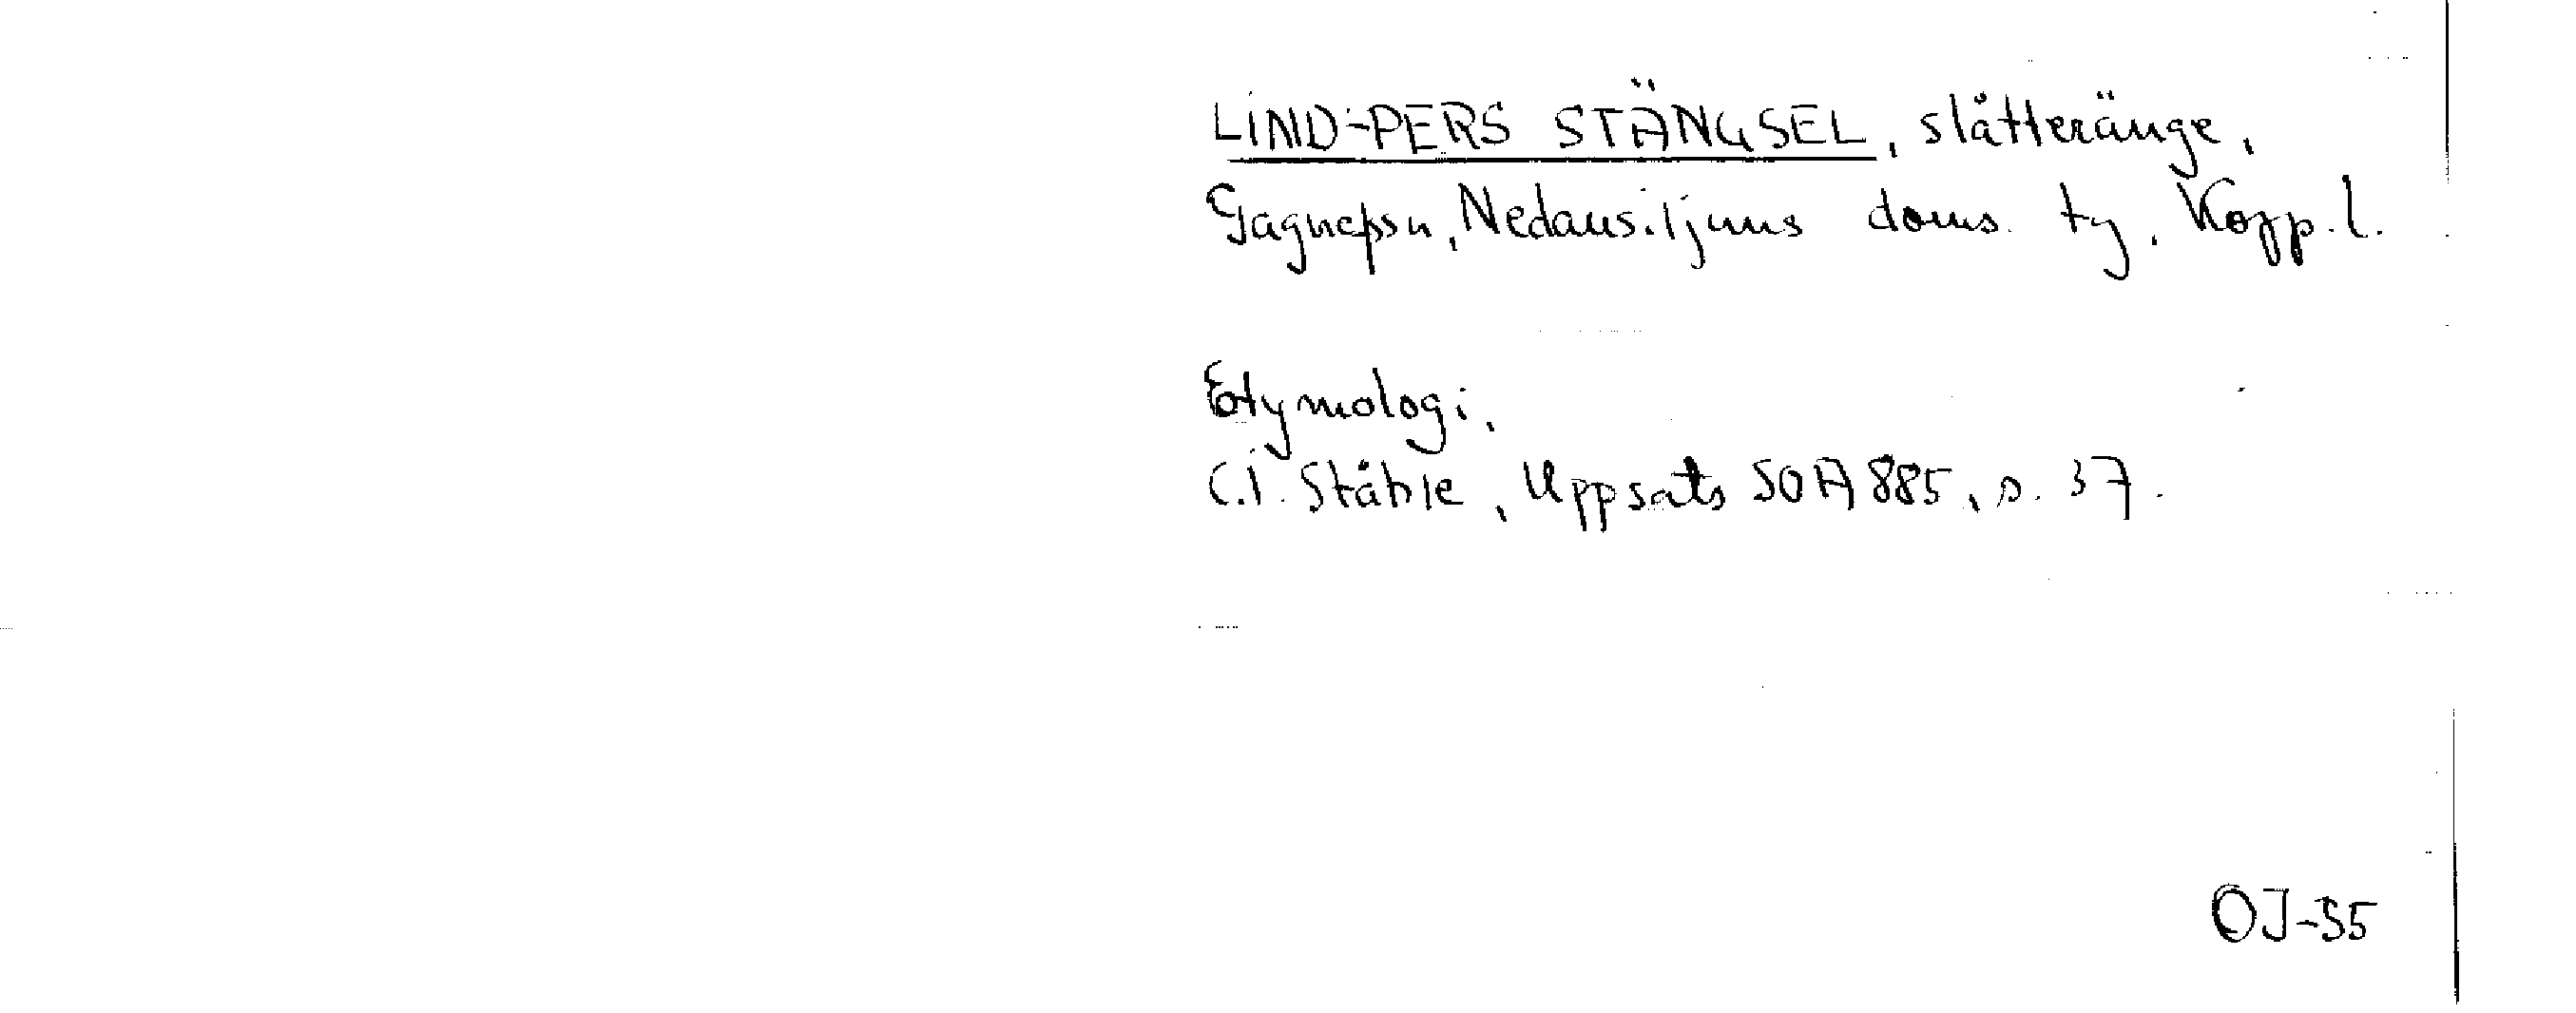 LIND-PERS STÄNGSEL, slåtteränge,
Gagnefsn, Nedansiljans doms. tg, Kopp.l.
Etymologi,
C.I. Ståhle, Uppsats SOA 885, s. 37.
OJ-35